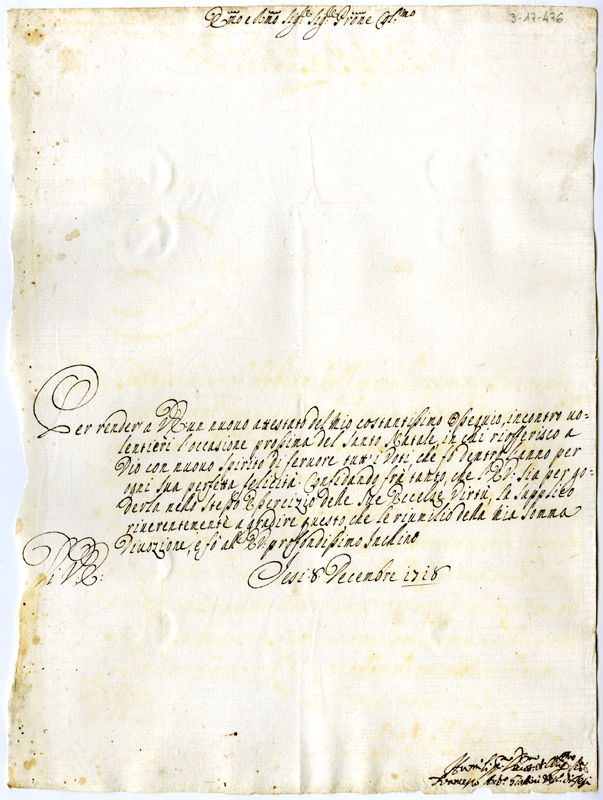 3-17-436
Em̃o e Rm̃o Sig.re Sig.re Prone Col.mo
Per render a V.E. un nuovo attestato del mio costantissimo Ossequio, incontro uo=
lentieri l'occasione prossima del Santo Natale, in cui riofferisco a
Dio con nuouo spirito di feruore tutti i Voti, che fò dentro l'anno per
ogni sua perfetta felicità. Confidando frà tanto, che l'E.V. sia per go=
derla nello stesso Esercizio delle sue Eccelse Virtù, la supplico
riuerentemente a gradire questo, che le riumilio della mia somma
Diuozione, e fò all' E.V. profondissimo Inchino
Di V.E.:
Jesi 8 Decembre 1718
Francesco
di Jesi